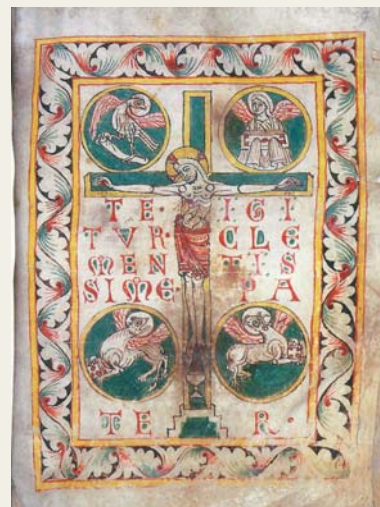 TE · IGI
TVR · CLE
MEN TIS
SIME · PA
TE R ·